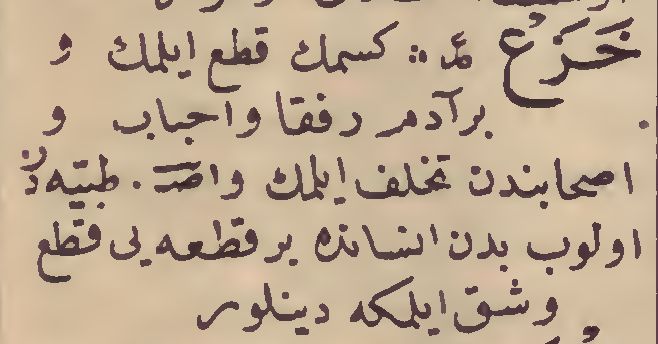 خَزْعُ كسمك قطع ايلمك و
برآدم رفقا و احباب و
اصحابندن تخلف ايلمك واصـ . طبيّه دن
اولوب بدن انسانده بر قطعه يى قطع
وشق ايلمكه دينلور